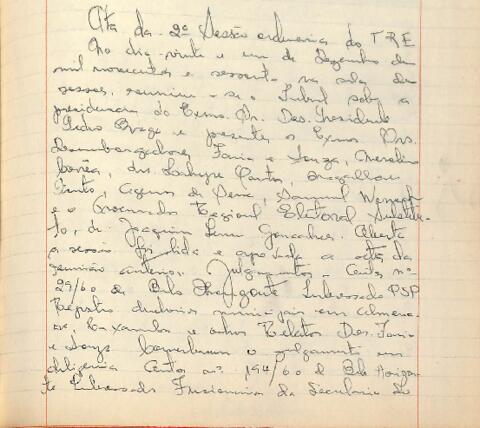 Ata da 2ª Sessão ordinaria do T.R.E.
No dia vinte e um de Dezembro de
mil novecentos e sessenta na sala das
sessoes, reuniu-se o Tribunal sob a
presidencia do Exmo. Sr. Des. Presidente
Pedro Braga e presentes os Exmos Srs.
Desembargadores Faria e Souza,
Santos, Magalhaes
Pinto, Cicero de Pena, Samuel Werneck
e o Procurador Regional Eleitoral Substitu-
to, dr. Joaquim Gonçalves. Aberta
a sessão foi lida e aprovada a acta da
reunião anterior. Julgamentos - Autos nº
29/60 de Belo Horizonte Interessado PSP
Registro diretorios municipais em Almena-
ra, e outros Relator Des. Faria
e Souza Converteram o julgamento em
diligencia Autos nº 194/60 de Belo Horizon-
te Interessados Funcionarios da Secretaria do